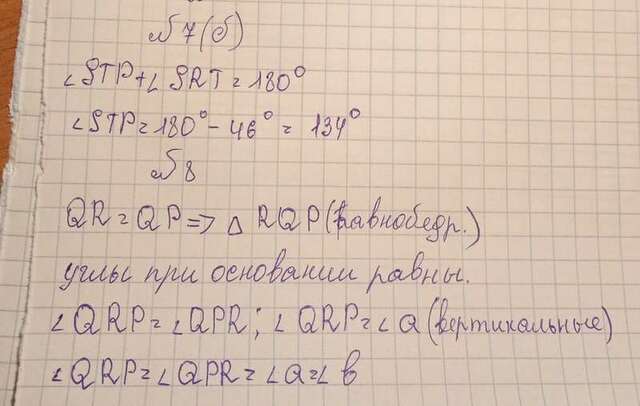 № 7 (б)
∠STP+∠SRT=180°
∠STP=180°-46°=134°
№ 8
QR=QP=>△RQP(равнобедр.)
углы при основании равны.
∠QRP=∠QPR; ∠QRP=∠a(вертикальные)
∠QRP=∠QPR=∠a=∠b